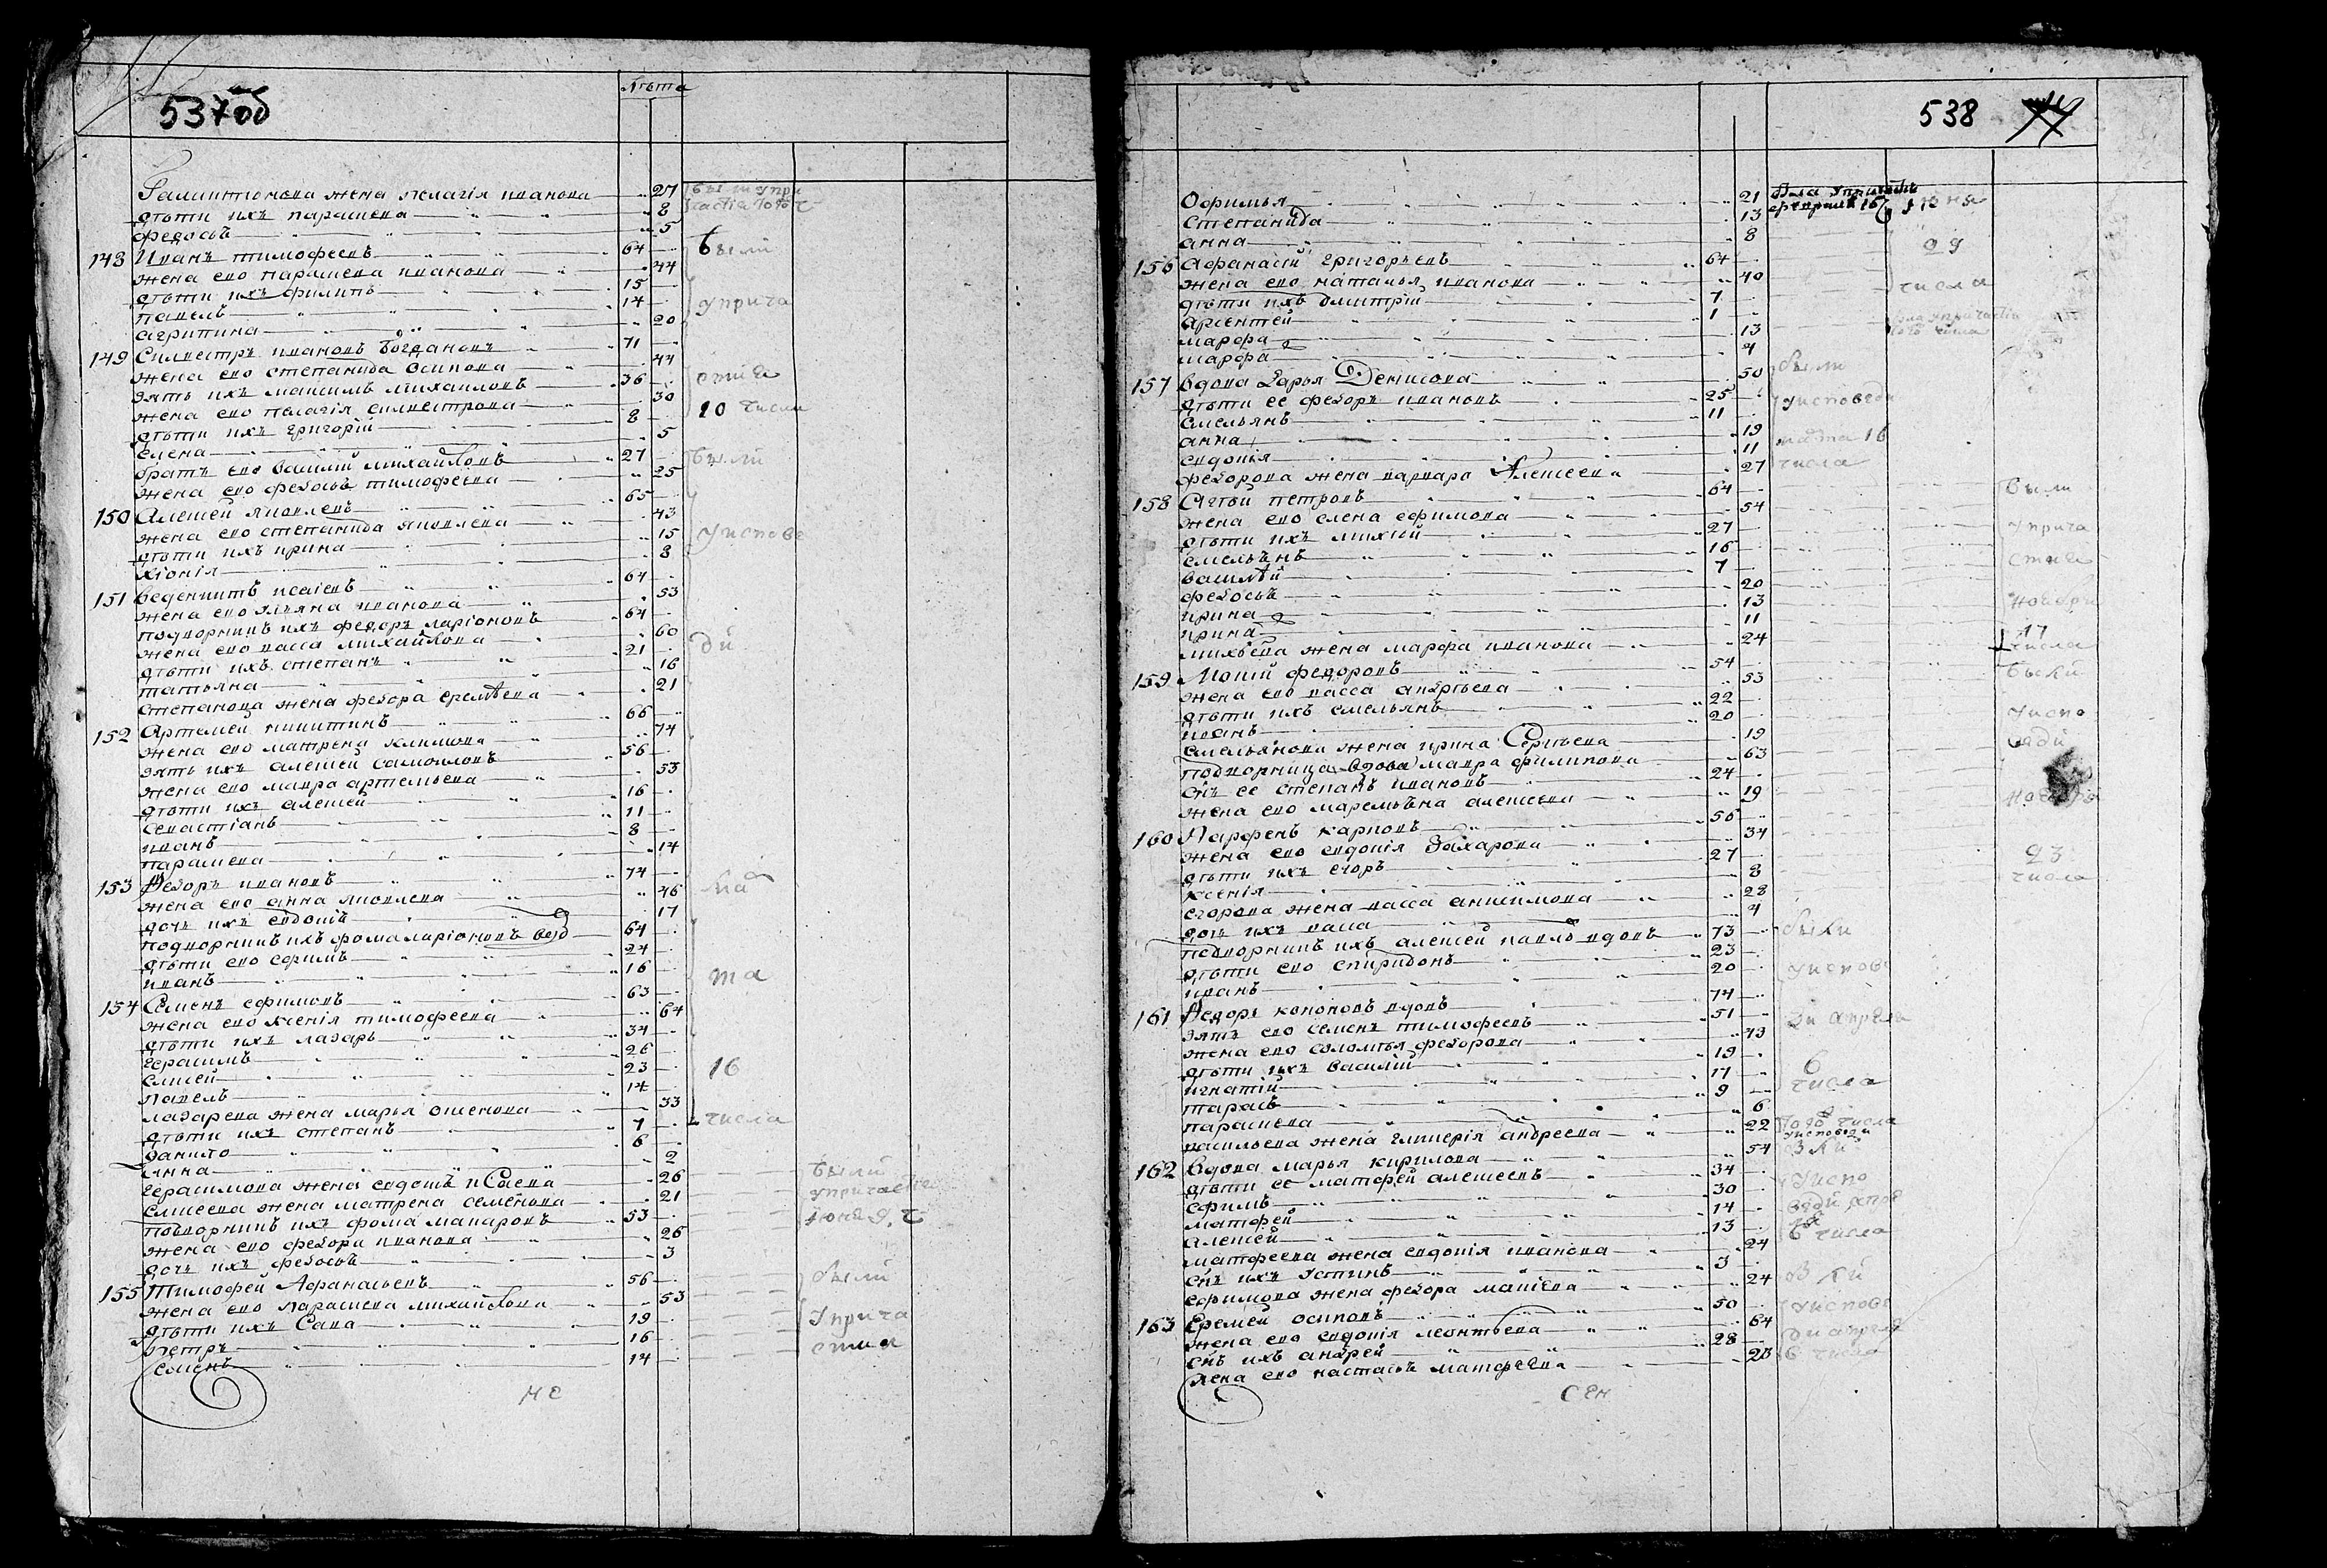 537об
лѣта
Галиктионова жена пелагія иванова 27
дѣти ихъ парасковея 8
федосья 5
148 Иванъ тимофеевъ 64
жена ево параскева иванова 44
дѣти ихъ филипъ 15
павелъ 14
агрипина 20
149 Силвестръ ивановъ Богдановъ 71
жена ево степанида осипова 44
зять ихъ максимъ михаиловъ 36
жена ево пелагія силвестрова 30
дѣти ихъ григорій 8
елена 5
братъ ево василій михайловъ 27
жена ево федосья тимофеева 25
150 Алексей яковлевъ 65
жена ево степанида яковлева 43
дѣти ихъ ирина 15
хіонія 8
151 веденихтъ исаіевъ 64
жена ево ульяна иванова 53
подворникъ ихъ федоръ ларіоновъ 64
жена ево васса михайлова 60
дѣти ихъ степанъ 21
татьяна 16
степанова жена федора еремѣева 21
152 Артемей никитинъ 66
жена ево матрена климова 74
зять ихъ алексей самоиловъ 56
жена ево мавра артемьева 53
дѣти ихъ алексей 16
севастіанъ 11
иванъ 8
параскева 14
153 Федоръ ивановъ 74
жена ево анна яковлева 46
дочь ихъ евдокія 17
подворникъ ихъ фома ларіоновъ вдо 64
дѣти ево ефимъ 24
иванъ 16
154 Семенъ ефимовъ 63
жена ево ксенія тимофеева 64
дѣти ихъ лазарь 34
герасимъ 26
елисей 23
павелъ 14
лазарева жена марья 33
дѣти ихъ степанъ 7
данило 6
анна 2
герасимова жена евдокія исаева 26
елисеева жена матрена семенова 21
подворникъ ихъ фома макаровъ 53
жена ево федора иванова 26
дочь ихъ федосья 3
155 Тимофей Афанасьевъ 56
жена ево параскева михайлова 53
дѣти ихъ Сава 19
петръ 16
семенъ 14
были у при
частія
были
у прича
стия
10 числа
были
у испове
ди
ма
та
16
числа
были
у причастия
июня 9 ч
были
у прича
стия
не
538
Офимья 21
Степанида 13
анна 8
156 Афанасій григорьевъ 64
жена ево наталья иванова 40
дѣти ихъ дмитрій 7
арсентей 1
марфа 13
марфа 4
157 вдова дарья Денисова 50
дѣти ее федоръ ивановъ 25
емельянъ 11
анна 19
евдокія 11
федорова жена варвара Алексеева 27
158 Агѣй петровъ 64
жена ево елена ефимова 54
дѣти ихъ михѣй 27
емельянъ 16
василѣй 7
федосья 20
ирина 13
ирина 11
михѣева жена марфа иванова 24
159 Мокій федоровъ 54
жена ево васса андрѣева 53
дѣти ихъ емельянъ 22
иванъ 20
емельянова жена ирина Сергѣева 19
подворница вдова мавра филипова 63
сынъ ее степанъ ивановъ 24
жена ево маремьяна алексеева 19
160 Парфенъ карповъ 56
жена ево евдокія Захарова 34
дѣти ихъ егоръ 27
ксенія 8
егорова жена васса анисимова 28
дочь ихъ васса 4
подворникъ ихъ алексей павло вдовъ 73
дѣти ево спиридонъ 23
иванъ 20
161 Федоръ кононовъ вдовъ 74
зять ево семенъ тимофеевъ 51
жена ево соломѣя федорова 43
дѣти ихъ василій 19
игнатій 17
тарасъ 9
параскева 6
васильева жена гликерія андреева 22
162 вдова марья кирилова 54
дѣти ее матфей алексеевъ 34
ефимъ 30
матфей 14
алексей 13
матфеева жена евдокія иванова 24
сынъ ихъ Устинъ 3
ефимова жена федора 24
163 Еремей осиповъ 50
жена ево евдокія леонтьева 64
сынъ ихъ андрей 28
жена ево настасья матфеева 23
была у причастія
февраля 16
июня
29
числа
была у причастія
того числа
были
у исповеди
марта 16
числа
были
у прича
стия
ноября
17
числа
были
у испо
веди
ноября
23
числа
были
у испове
ди апреля
6
числа
того числа
исповеди
у испо
веди апре
6 числа
у испове
ди апреля
6 числа
сен